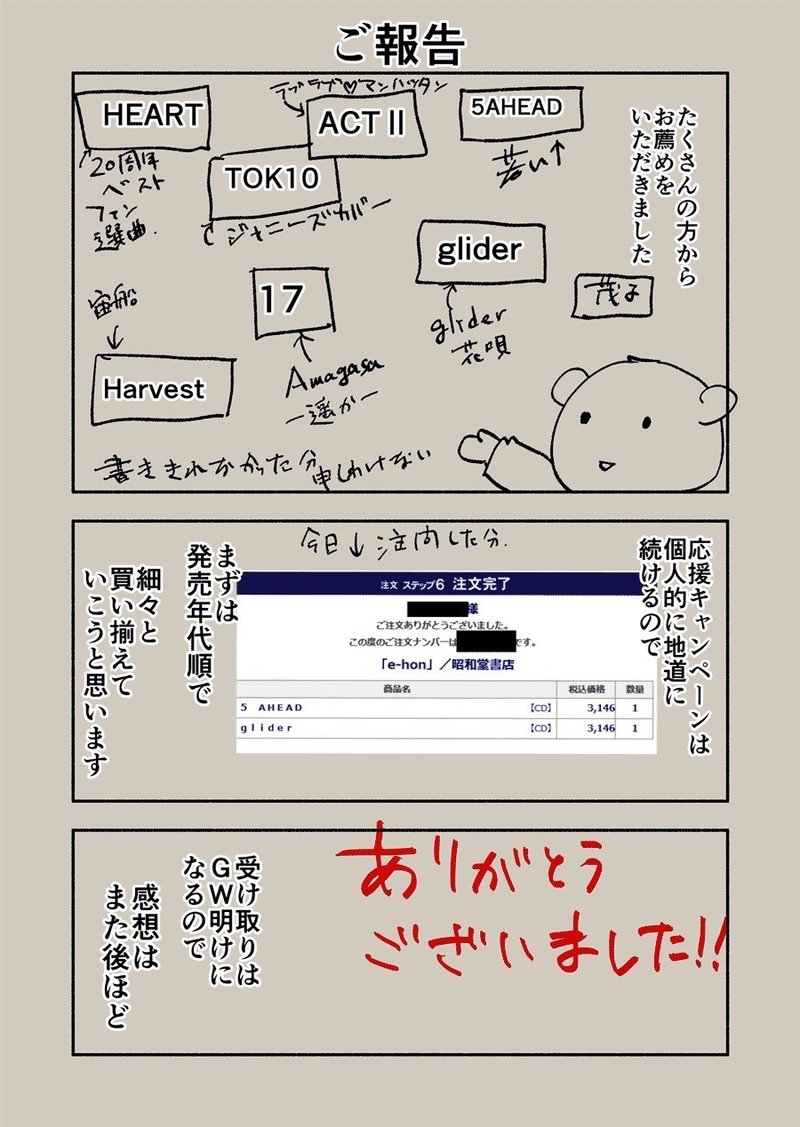 ご報告
たくさんの方から
お薦めを
いただきました
ラブラブ♡マンハッタン
HEART
ACTⅡ
5AHEAD
若い↑
20周年
ベスト
ファン
選曲.
TOK10
ジャニーズカバー
glider
glider
花唄
茂子
17
Amagasa
ー遥かー
宙船
Harvest
書ききれなかった分
申しわけない
応援キャンペーンは
個人的に地道に
続けるので
今日↓注文した分.
注文 ステップ6 注文完了
様
ご注文ありがとうございました。
この度のご注文ナンバーは
です。
「e-hon」／昭和堂書店
商品名 税込価格 数量
5 AHEAD 【CD】 3,146 1
glider 【CD】 3,146 1
まずは
発売年代順で
細々と
買い揃えて
いこうと思います
ありがとう
ございました!!
受け取りは
GW明けに
なるので
感想は
また後ほど